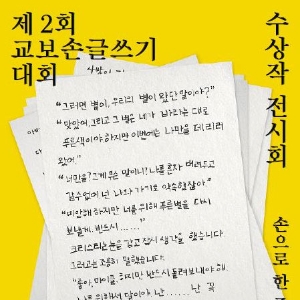 제 2회
교보손글쓰기
대회
수상작 전시회
손으로 한
"그러면 별이, 우리의 별이 왔단 말이야?"
"맞았어 그리고 그 별은 네가 바라는 대로
푸른색이야 하지만 이번에는 나만을 데리러
왔어."
"너만을? 그게 무슨 말이니? 나를 혼자 내버려두고
갈수없어 넌 나와 가기로 약속했잖아"
"미안해 하지만 너를 위해 푸른별을 다시
보낼게, 반드시……"
크리스티는 눈을 감고 잠시 생각을 했습니다.
그러고는 조용히 말했습니다.
"좋아, 마이클. 하지만 반드시 돌려보내야 해.
나를 위해서 말이야 난 …… 난 꼭